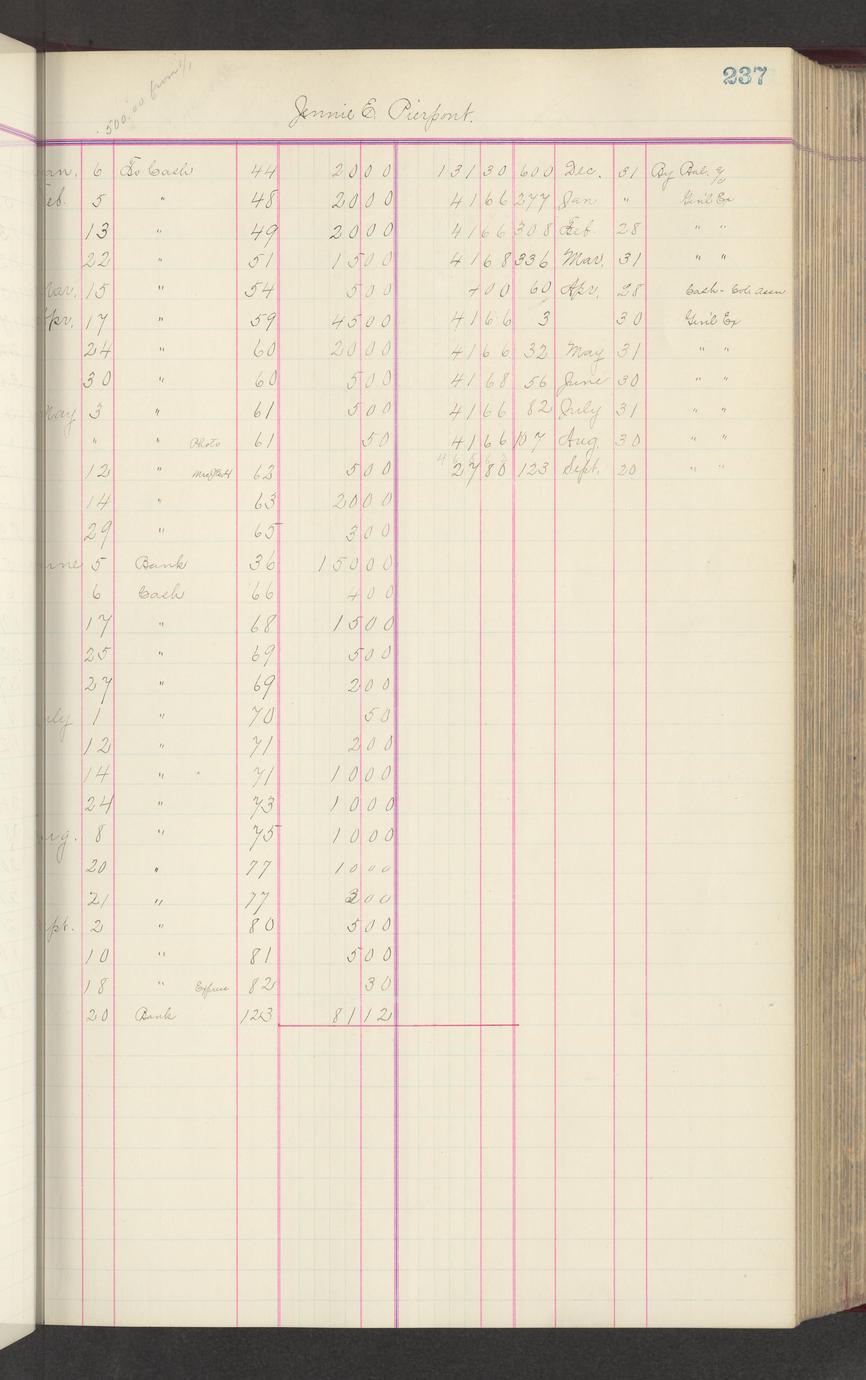 237
500.00 from
Jennie E. Pierpont.
an. 6 To Cash 44 20 00 131 30 600 Dec. 31 By Bal. %
eb. 5 " 48 20 00 41 66 277 Jan " Gen'l Ex
13 " 49 20 00 41 66 308 Feb. 28 " "
22 " 51 15 00 41 68 336 Mar. 31 " "
ar. 15 " 54 5 00 4 00 60 Apr. 28 Cash - Assn
pr. 17 " 59 45 00 41 66 3 30 Gen'l Ex
24 " 60 20 00 41 66 32 May 31 " "
30 " 60 5 00 41 68 56 June 30 " "
May 3 " 61 5 00 41 66 82 July 31 " "
" " Photo 61 50 41 66 107 Aug. 30 " "
12 " 62 5 00 27 80 123 Sept. 20 " "
14 " 63 20 00
29 " 65 3 00
une 5 Bank 36 150 00
6 Cash 66 4 00
17 " 68 15 00
25 " 69 5 00
27 " 69 2 00
uly 1 " 70 50
12 " 71 2 00
14 " 71 10 00
24 " 73 10 00
ug. 8 " 75 10 00
20 " 77 10 00
21 " 77 3 00
pt. 2 " 80 5 00
10 " 81 5 00
18 " Express 82 30
20 Bank 123 81 12